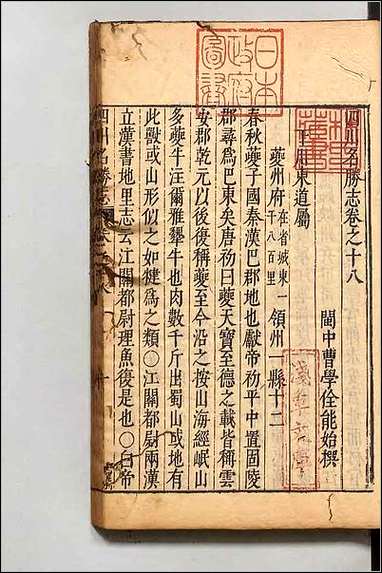 日本
政府
圖書
四川名勝志卷之十八
閩中曹學佺能始撰
上川東道屬
夔州府在省城東一千八百里領州一縣十二
春秋夔子國秦漢巴郡地也獻帝初平中置固陵
郡尋爲巴東矣唐初曰夔天寶至德之載皆稱雲
安郡乾元以後後稱夔至今沿之按山海經岷山
多夔牛汪爾雅犩牛也肉數千斤出蜀山或地有
此獸或山形似之如犍爲之類〇江關都尉兩漢
立漢書地里志云江關都尉理魚復是也〇白帝
四川名勝志